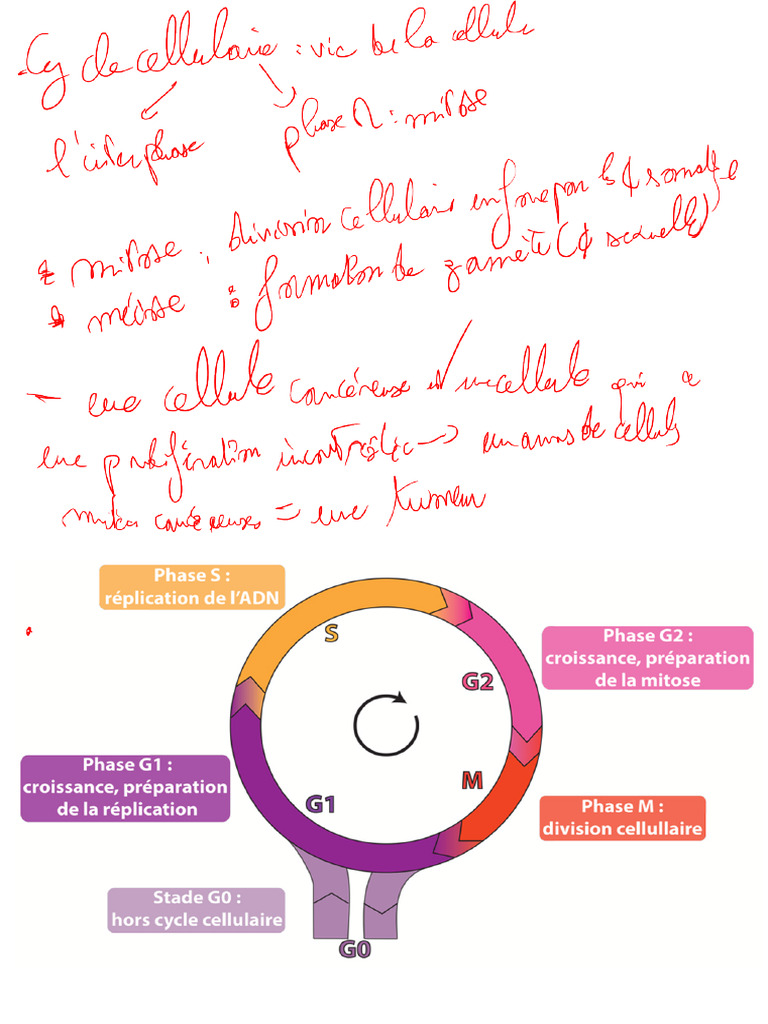 - Cycle cellulaire : vie de la cellule
l'interphase
phase M : mitose
* mitose : division cellulaire en fone par les ¢ somatqe
* méiose : formation de gamète (¢ sexuelle)
- une cellule cancéreuse est une cellule qui a
une prolifération incontrôlée → un amas de cellules
cancéreuses = une tumeur
Phase S :
réplication de l'ADN
S
Phase G2 :
croissance, préparation
de la mitose
G2
Phase G1 :
croissance, préparation
de la réplication
G1
M
Phase M :
division cellullaire
Stade G0 :
hors cycle cellulaire
G0